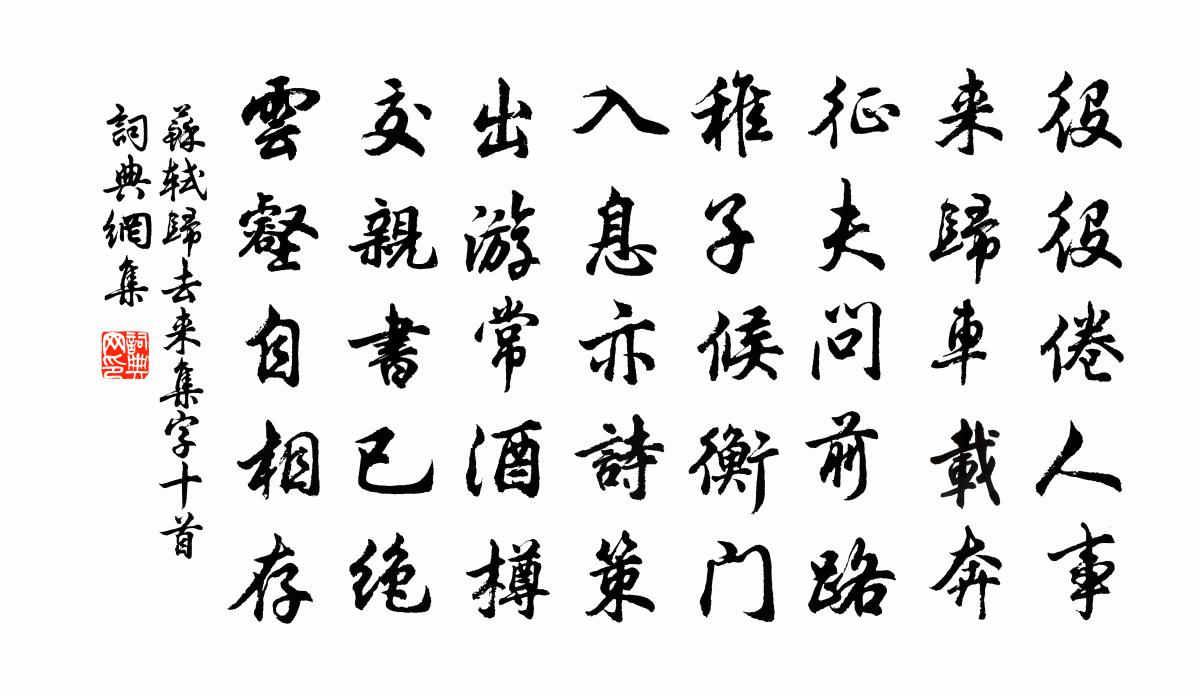 役役倦人事
来歸車載奔
征夫問前路
稚子候衡门
入息亦詩策
出游常酒樽
交親書已绝
雲壑自相存
蘇轼歸去来集字十首
詞典網集
詞典网印